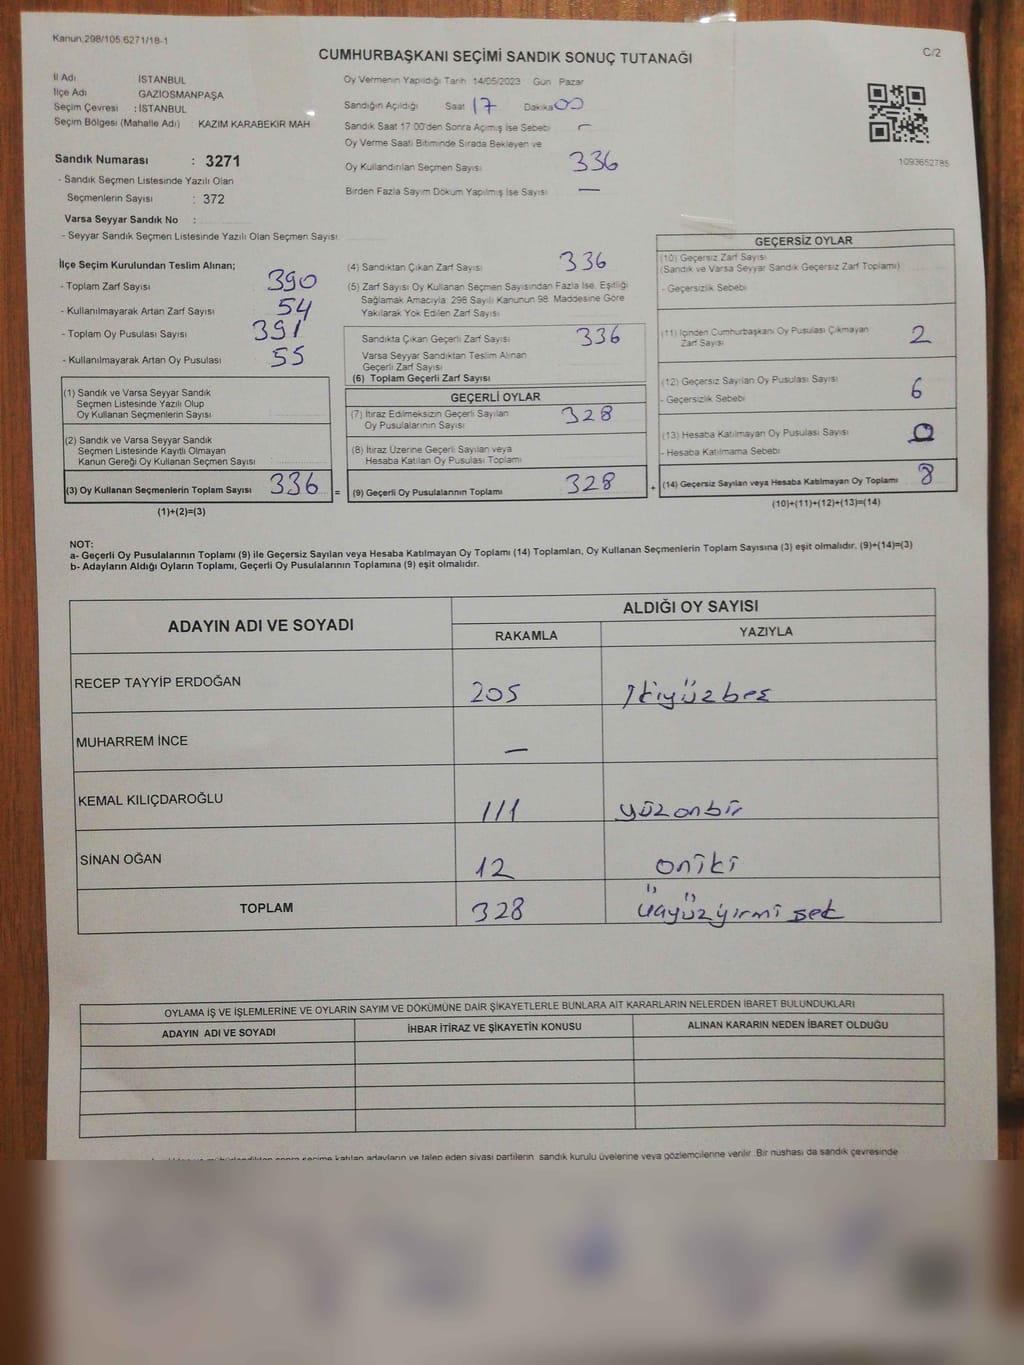 Kanun.298/105.6271/18-1
C/2
CUMHURBAŞKANI SEÇİMİ SANDIK SONUÇ TUTANAĞI
İl Adı İSTANBUL
İlçe Adı GAZİOSMANPAŞA
Seçim Çevresi : İSTANBUL
Seçim Bölgesi (Mahalle Adı) : KAZIM KARABEKİR MAH
Sandık Numarası : 3271
- Sandık Seçmen Listesinde Yazılı Olan
Seçmenlerin Sayısı : 372
Varsa Seyyar Sandık No :
- Seyyar Sandık Seçmen Listesinde Yazılı Olan Seçmen Sayısı
Oy Vermenin Yapıldığı Tarih 14/05/2023 Gün Pazar
Sandığın Açıldığı Saat 17 Dakika 00
Sandık Saat 17.00'den Sonra Açımış İse Sebebi –
Oy Verme Saati Bitiminde Sırada Bekleyen ve
Oy Kullandırılan Seçmen Sayısı 336
Birden Fazla Sayım Döküm Yapılmış İse Sayısı —
1093652785
İlçe Seçim Kurulundan Teslim Alınan;
- Toplam Zarf Sayısı 390
- Kullanılmayarak Artan Zarf Sayısı 54
- Toplam Oy Pusulası Sayısı 391
- Kullanılmayarak Artan Oy Pusulası 55
(1) Sandık ve Varsa Seyyar Sandık
Seçmen Listesinde Yazılı Olup
Oy Kullanan Seçmenlerin Sayısı
(2) Sandık ve Varsa Seyyar Sandık
Seçmen Listesinde Kayıtlı Olmayan
Kanun Gereği Oy Kullanan Seçmen Sayısı
(3) Oy Kullanan Seçmenlerin Toplam Sayısı 336 =
(1)+(2)=(3)
(4) Sandıktan Çıkan Zarf Sayısı 336
(5) Zarf Sayısı Oy Kullanan Seçmen Sayısından Fazla İse, Eşitliği
Sağlamak Amacıyla 298 Sayılı Kanunun 98. Maddesine Göre
Yakılarak Yok Edilen Zarf Sayısı
Sandıkta Çıkan Geçerli Zarf Sayısı 336
Varsa Seyyar Sandıktan Teslim Alınan
Geçerli Zarf Sayısı
(6) Toplam Geçerli Zarf Sayısı
GEÇERLİ OYLAR
(7) İtiraz Edilmeksizin Geçerli Sayılan
Oy Pusulalarının Sayısı 328
(8) İtiraz Üzerine Geçerli Sayılan veya
Hesaba Katılan Oy Pusulası Toplamı
(9) Geçerli Oy Pusulalarının Toplamı 328 +
GEÇERSİZ OYLAR
(10) Geçersiz Zarf Sayısı
(Sandık ve Varsa Seyyar Sandık Geçersiz Zarf Toplamı)
- Geçersizlik Sebebi
(11) İçinden Cumhurbaşkanı Oy Pusulası Çıkmayan
Zarf Sayısı 2
(12) Geçersiz Sayılan Oy Pusulası Sayısı 6
- Geçersizlik Sebebi
(13) Hesaba Katılmayan Oy Pusulası Sayısı 0
- Hesaba Katılmama Sebebi
(14) Geçersiz Sayılan veya Hesaba Katılmayan Oy Toplamı 8
(10)+(11)+(12)+(13)=(14)
NOT:
a- Geçerli Oy Pusulalarının Toplamı (9) ile Geçersiz Sayılan veya Hesaba Katılmayan Oy Toplamı (14) Toplamları, Oy Kullanan Seçmenlerin Toplam Sayısına (3) eşit olmalıdır. (9)+(14)=(3)
b- Adayların Aldığı Oyların Toplamı, Geçerli Oy Pusulalarının Toplamına (9) eşit olmalıdır.
ADAYIN ADI VE SOYADI ALDIĞI OY SAYISI
RAKAMLA YAZIYLA
RECEP TAYYİP ERDOĞAN 205 İkiyüzbeş
MUHARREM İNCE —
KEMAL KILIÇDAROĞLU 111 yüzonbir
SİNAN OĞAN 12 oniki
TOPLAM 328 üçyüzyirmi sek
OYLAMA İŞ VE İŞLEMLERİNE VE OYLARIN SAYIM VE DÖKÜMÜNE DAİR ŞİKAYETLERLE BUNLARA AİT KARARLARIN NELERDEN İBARET BULUNDUKLARI
ADAYIN ADI VE SOYADI İHBAR İTİRAZ VE ŞİKAYETİN KONUSU ALINAN KARARIN NEDEN İBARET OLDUĞU
sonra seçime katılan adayların ve talep eden siyasi partilerin sandık kurulu üyelerine veya gözlemcilerine verilir. Bir nüshası da sandık çevresinde